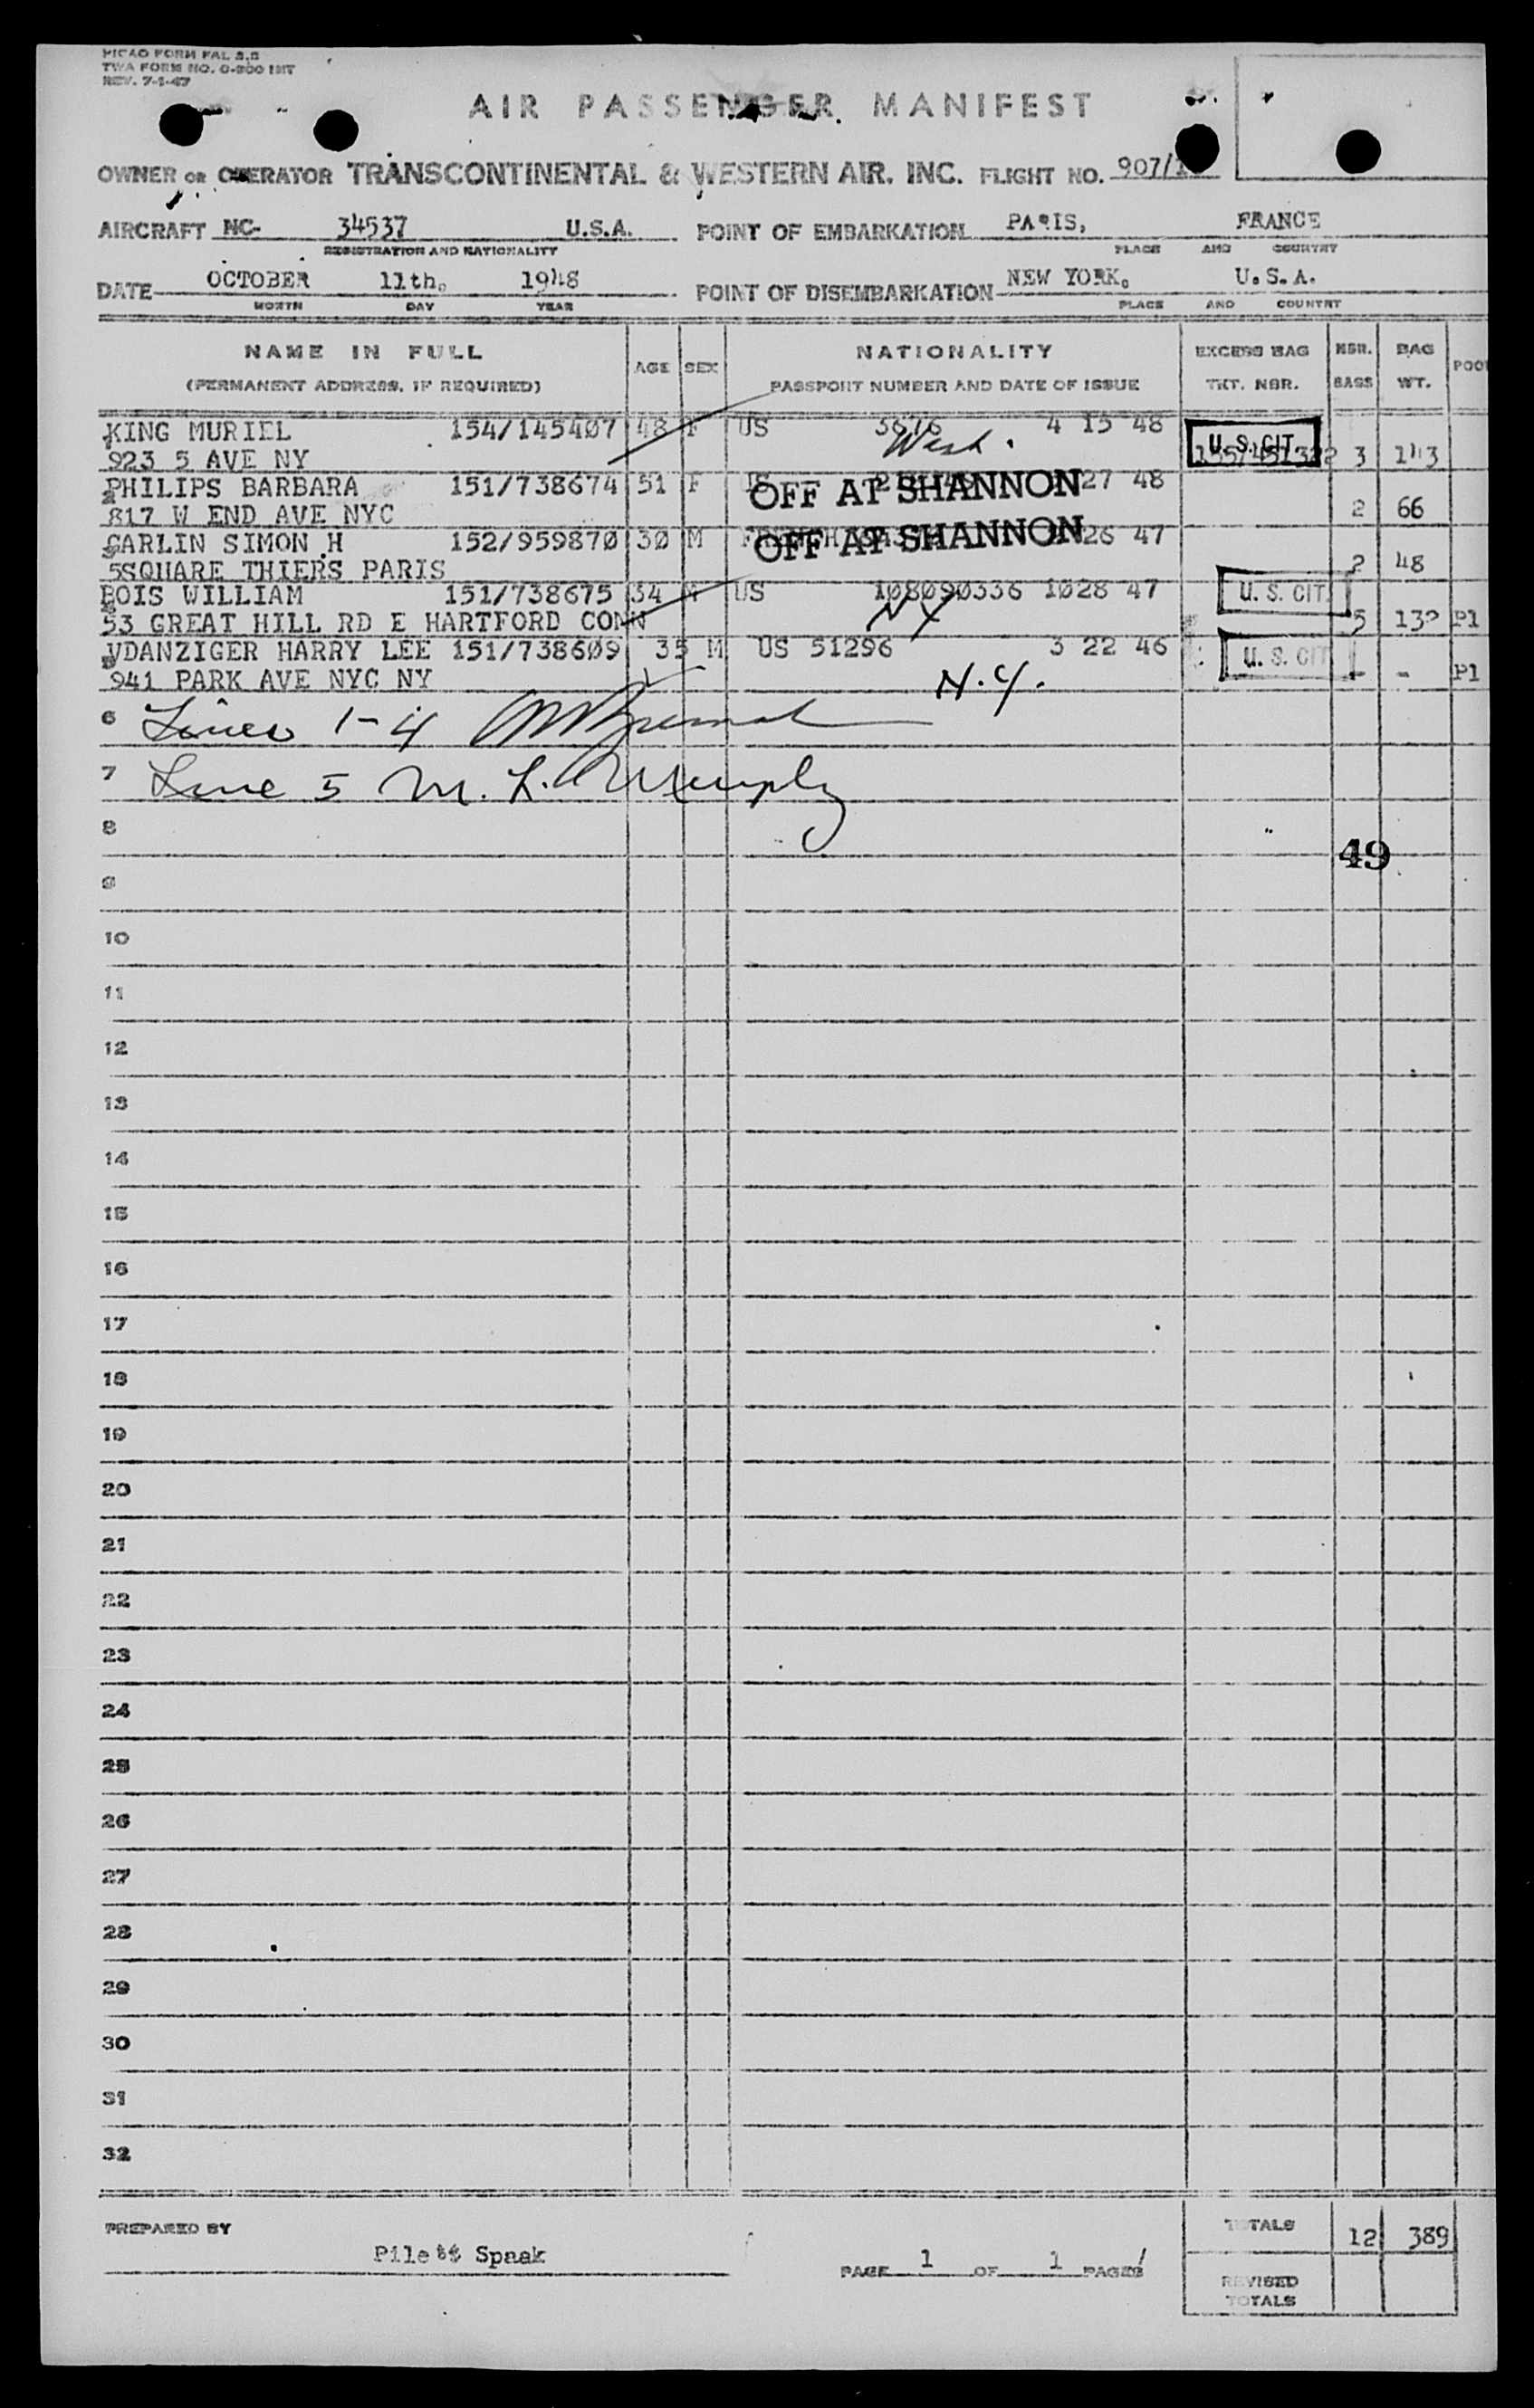 PICAO FORM FAL 2.5
TWA FORM NO. O-800 INT
REV. 7-1-47
AIR PASSENGER MANIFEST
OWNER OR OPERATOR TRANSCONTINENTAL & WESTERN AIR. INC. FLIGHT NO. 907/
AIRCRAFT NC- 34537 U.S.A. POINT OF EMBARKATION PARIS, FRANCE
REGISTRATION AND NATIONALITY PLACE AND COUNTRY
DATE OCTOBER 11th, 1948 POINT OF DISEMBARKATION NEW YORK, U.S.A.
MONTH DAY YEAR PLACE AND COUNTRY
NAME IN FULL AGE SEX NATIONALITY EXCESS BAG NBR. BAG POOL
(PERMANENT ADDRESS, IF REQUIRED) PASSPORT NUMBER AND DATE OF ISSUE TKT. NBR. BAGS WT.
KING MURIEL 154/145407 48 F US 3676 4 15 48 U.S. CIT.
923 5 AVE NY Wash. 3 143
PHILIPS BARBARA 151/738674 51 F US 27 48
OFF AT SHANNON
817 W END AVE NYC 2 66
CARLIN SIMON H 152/959870 30 M 26 47
OFF AT SHANNON
5SQUARE THIERS PARIS 2 48
BOIS WILLIAM 151/738675 34 M US 108090336 1028 47 U. S. CIT.
53 GREAT HILL RD E HARTFORD CONN NY 5 132 P1
VDANZIGER HARRY LEE 151/738609 35 M US 51296 3 22 46 U. S. CIT
941 PARK AVE NYC NY N.Y. - - P1
6 Lines 1-4
7 Line 5 M. L. Murphy
8
49
9
10
11
12
13
14
15
16
17
18
19
20
21
22
23
24
25
26
27
28
29
30
31
32
PREPARED BY TOTALS 12 389
Spaak PAGE 1 OF 1 PAGES
REVISED
TOTALS